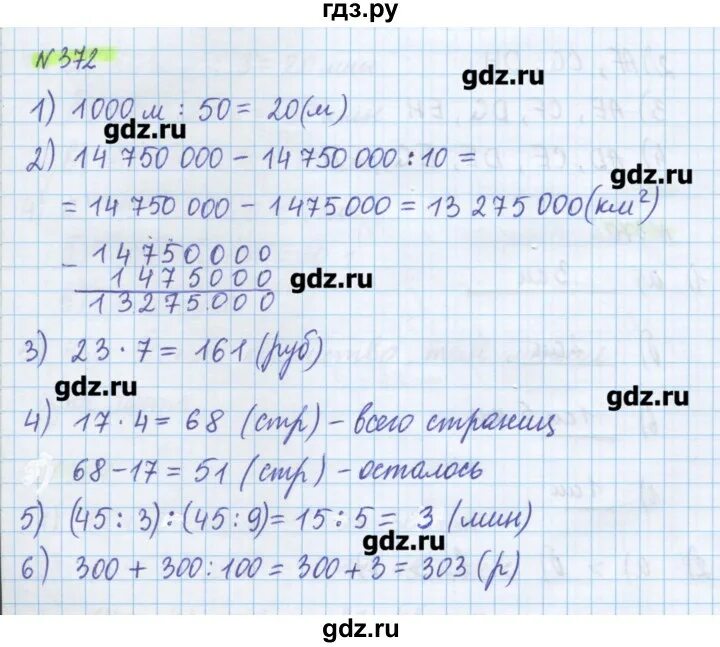 гдз.ру
N 372
gdz.ru
1) 1000 м : 50 = 20 (м)
gdz.ru
2) 14 750 000 - 14 750 000 : 10 =
gdz.ru
= 14 750 000 - 1475 000 = 13 275 000 (км²)
- 14750000
1475000
gdz.ru
13275000
3) 23 · 7 = 161 (руб)
gdz.ru
gdz.ru
4) 17 · 4 = 68 (стр) - всего страниц
68 - 17 = 51 (стр) - осталось
5) (45 : 3) : (45 : 9) = 15 : 5 = 3 (мин)
gdz.ru
6) 300 + 300 : 100 = 300 + 3 = 303 (р)
gdz.ru